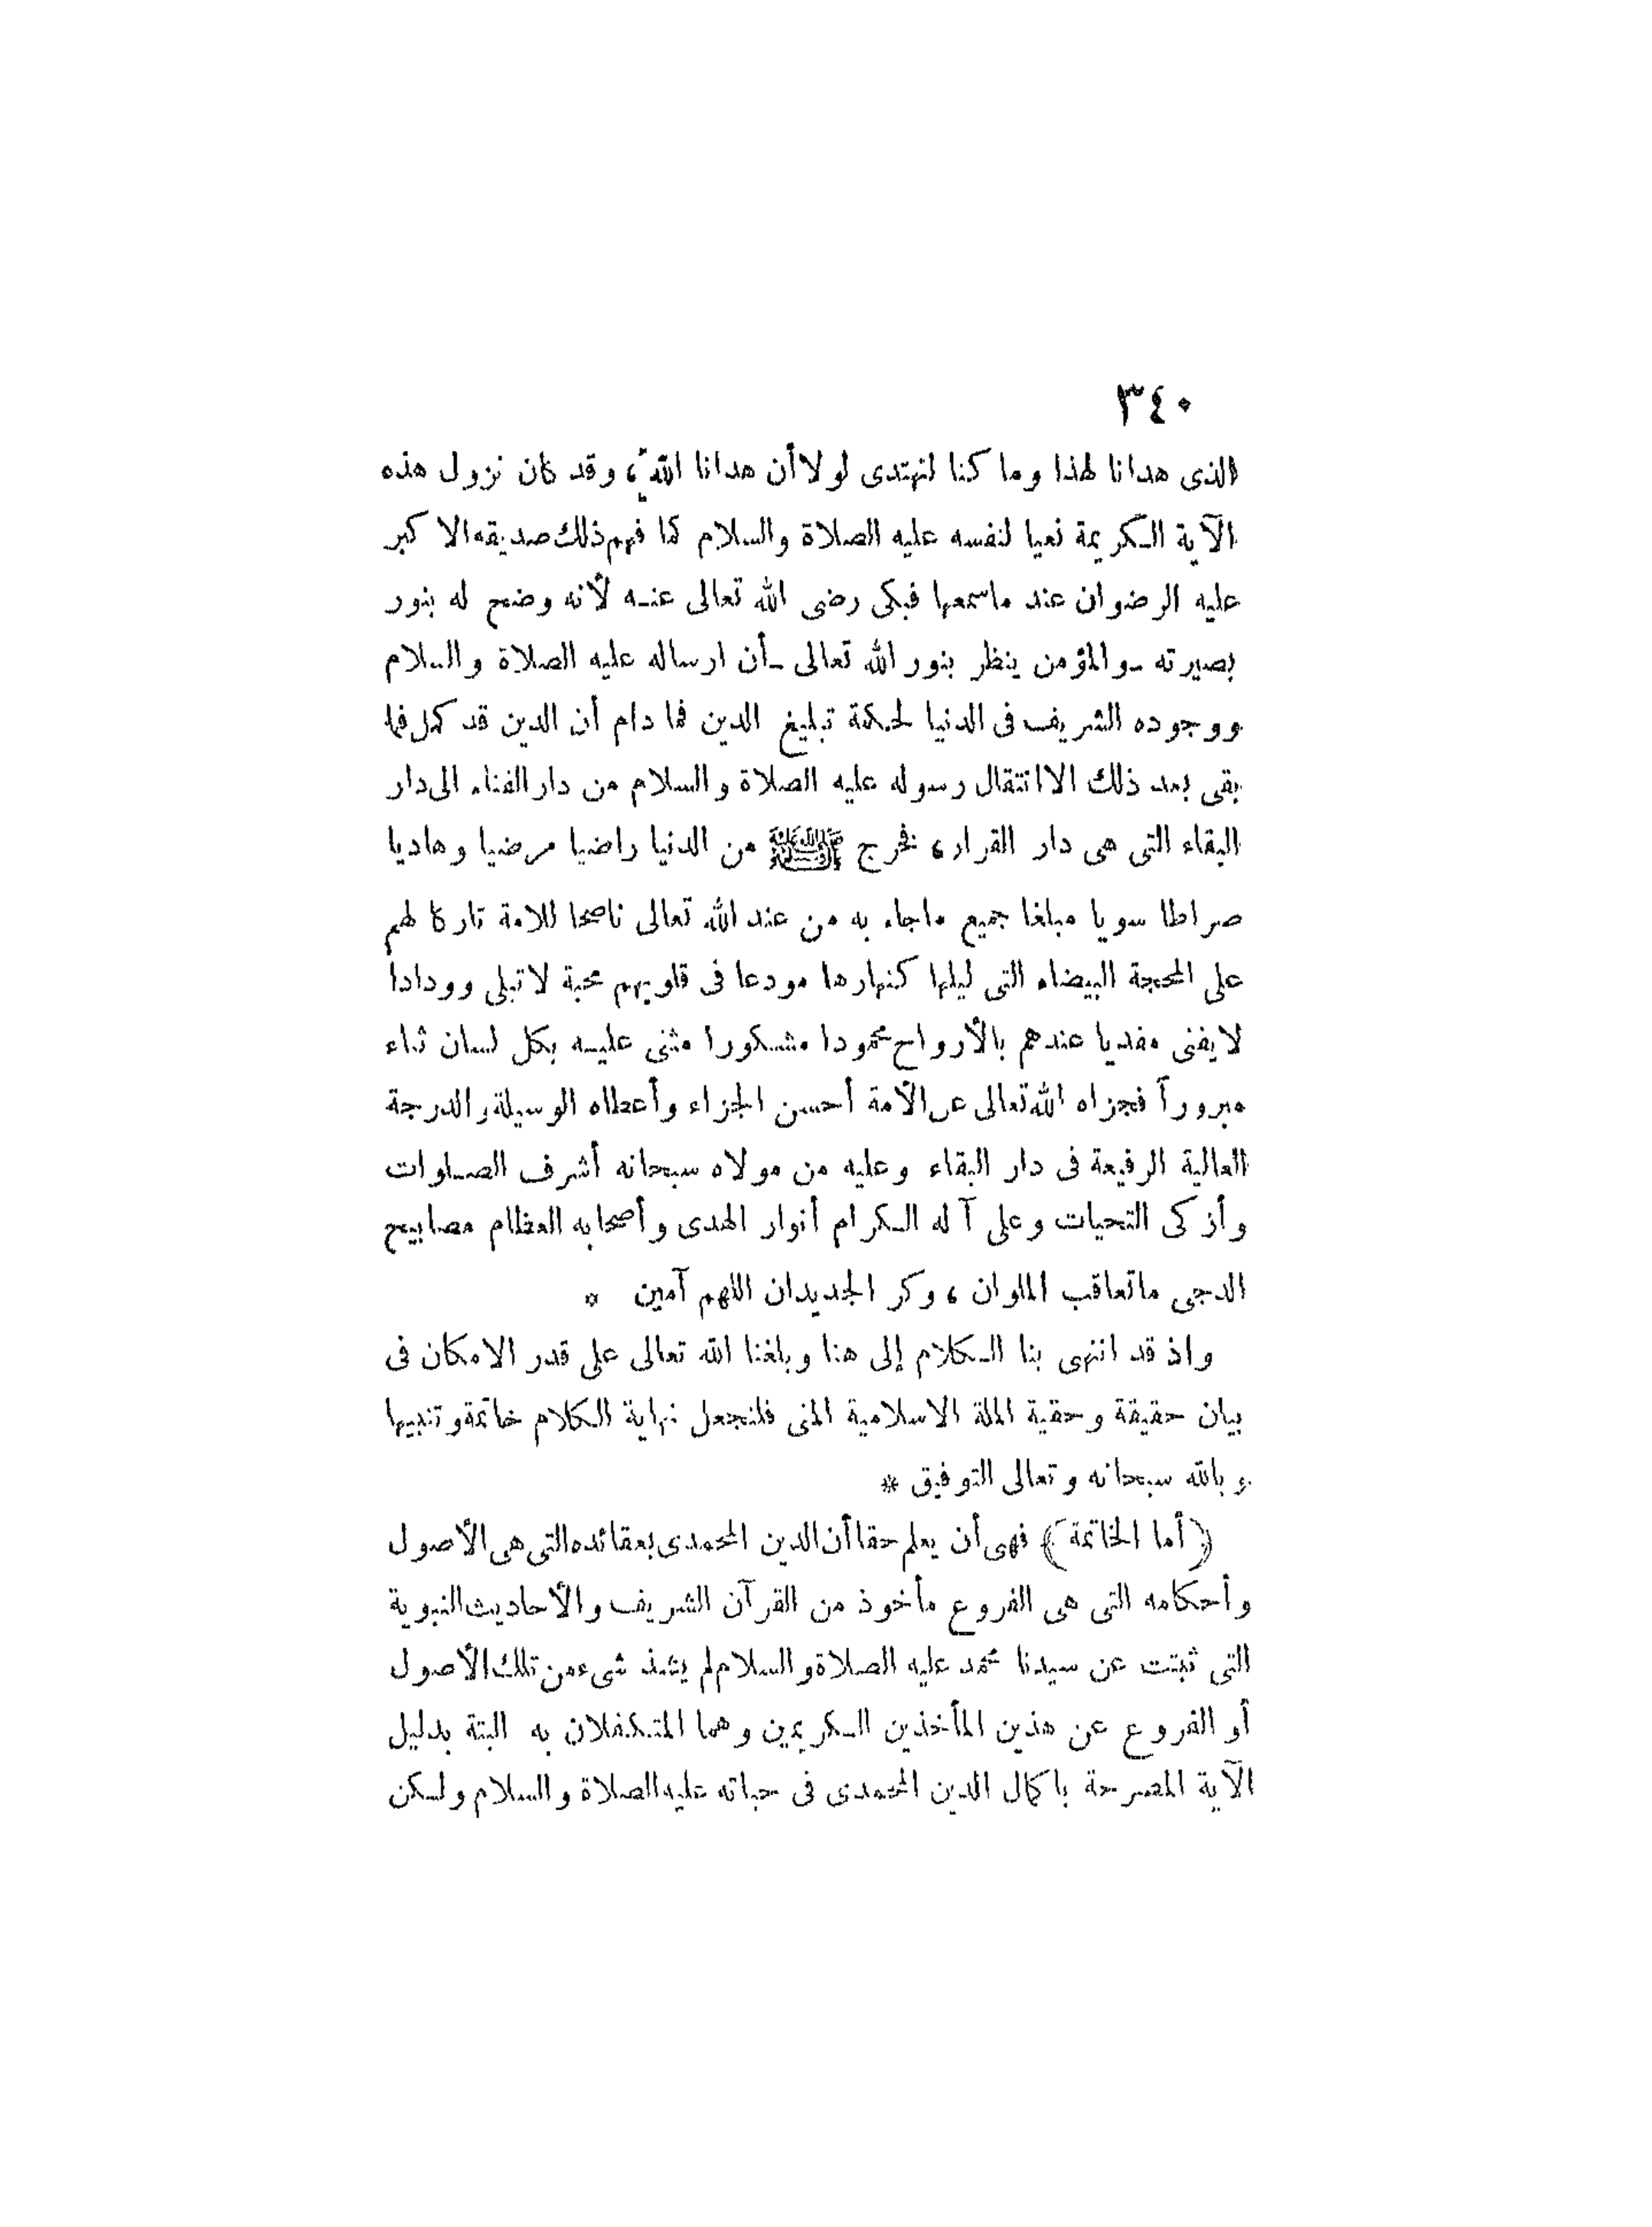 ٣٤٠
الذى هدانا لهذا وما كنا لنهتدى لولا أن هدانا الله، وقد كان نزول هذه
الآية الكريمة نعيا لنفسه عليه الصلاة والسلام كما فهم ذلك صديقه الاكبر
عليه الرضوان عند ماسمعها فبكى رضى الله تعالى عنه لأنه وضح له بنور
بصيرته ـ والمؤمن ينظر بنور الله تعالى ـ أن ارساله عليه الصلاة والسلام
ووجوده الشريف فى الدنيا لحكمة تبليغ الدين فما دام أن الدين قد كمل فما
بقى بعد ذلك الا انتقال رسوله عليه الصلاة والسلام من دار الفناء الى دار
البقاء التى هى دار القرار، فخرج ﷺ من الدنيا راضيا مرضيا وهاديا
صراطا سويا مبلغا جميع ماجاء به من عند الله تعالى ناصحا للامة تاركا لهم
على المحجة البيضاء التى ليلها كنهارها مودعا فى قلوبهم محبة لا تبلى وودادا
لايفنى مفديا عندهم بالأرواح محمودا مشكورا مثنى عليه بكل لسان ثناء
مبروراً فجزاه الله تعالى عن الأمة أحسن الجزاء وأعطاه الوسيلة والدرجة
العالية الرفيعة فى دار البقاء وعليه من مولاه سبحانه أشرف الصلوات
وأزكى التحيات وعلى آله الكرام أنوار الهدى وأصحابه العظام مصابيح
الدجى ماتعاقب الملوان، وكر الجديدان اللهم آمين *
واذ قد انتهى بنا الكلام إلى هنا وبلغنا الله تعالى على قدر الامكان فى
بيان حقيقة وحقية الملة الاسلامية المنى فلنجعل نهاية الكلام خاتمة وتنبيها
وبالله سبحانه وتعالى التوفيق *
﴿أما الخاتمة﴾ فهى أن يعلم حقا أن الدين المحمدى بعقائده التى هى الأصول
وأحكامه التى هى الفروع مأخوذ من القرآن الشريف والأحاديث النبوية
التى ثبتت عن سيدنا محمد عليه الصلاة والسلام لم يشذ شىء من تلك الأصول
أو الفروع عن هذين المأخذين الكريمين وهما المتكفلان به البتة بدليل
الآية المصرحة باكمال الدين المحمدى فى حياته عليه الصلاة والسلام ولكن